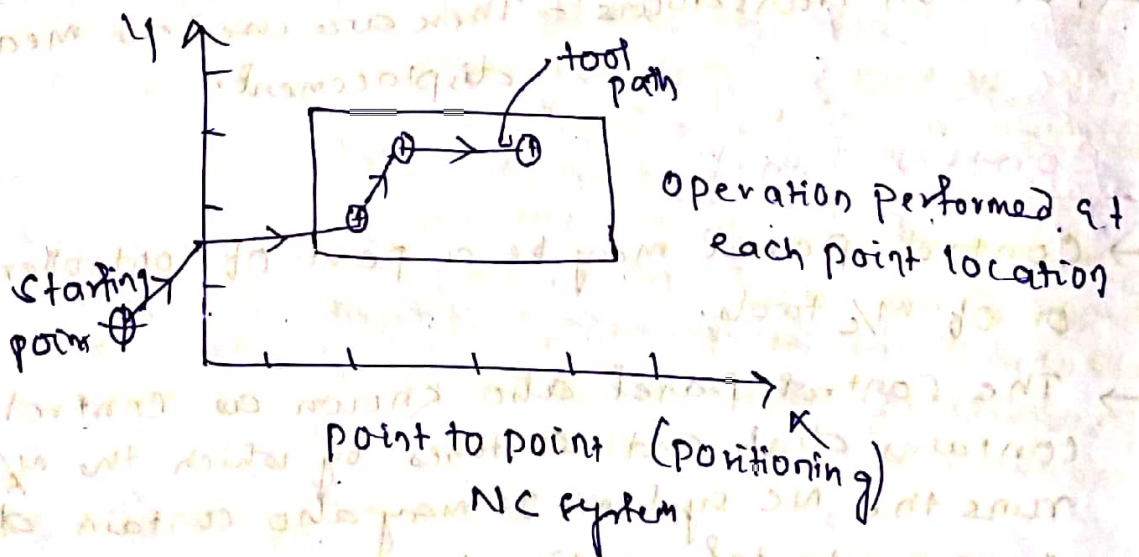 y
tool
path
operation performed at
each point location
starting
point
x
point to point (positioning)
NC system